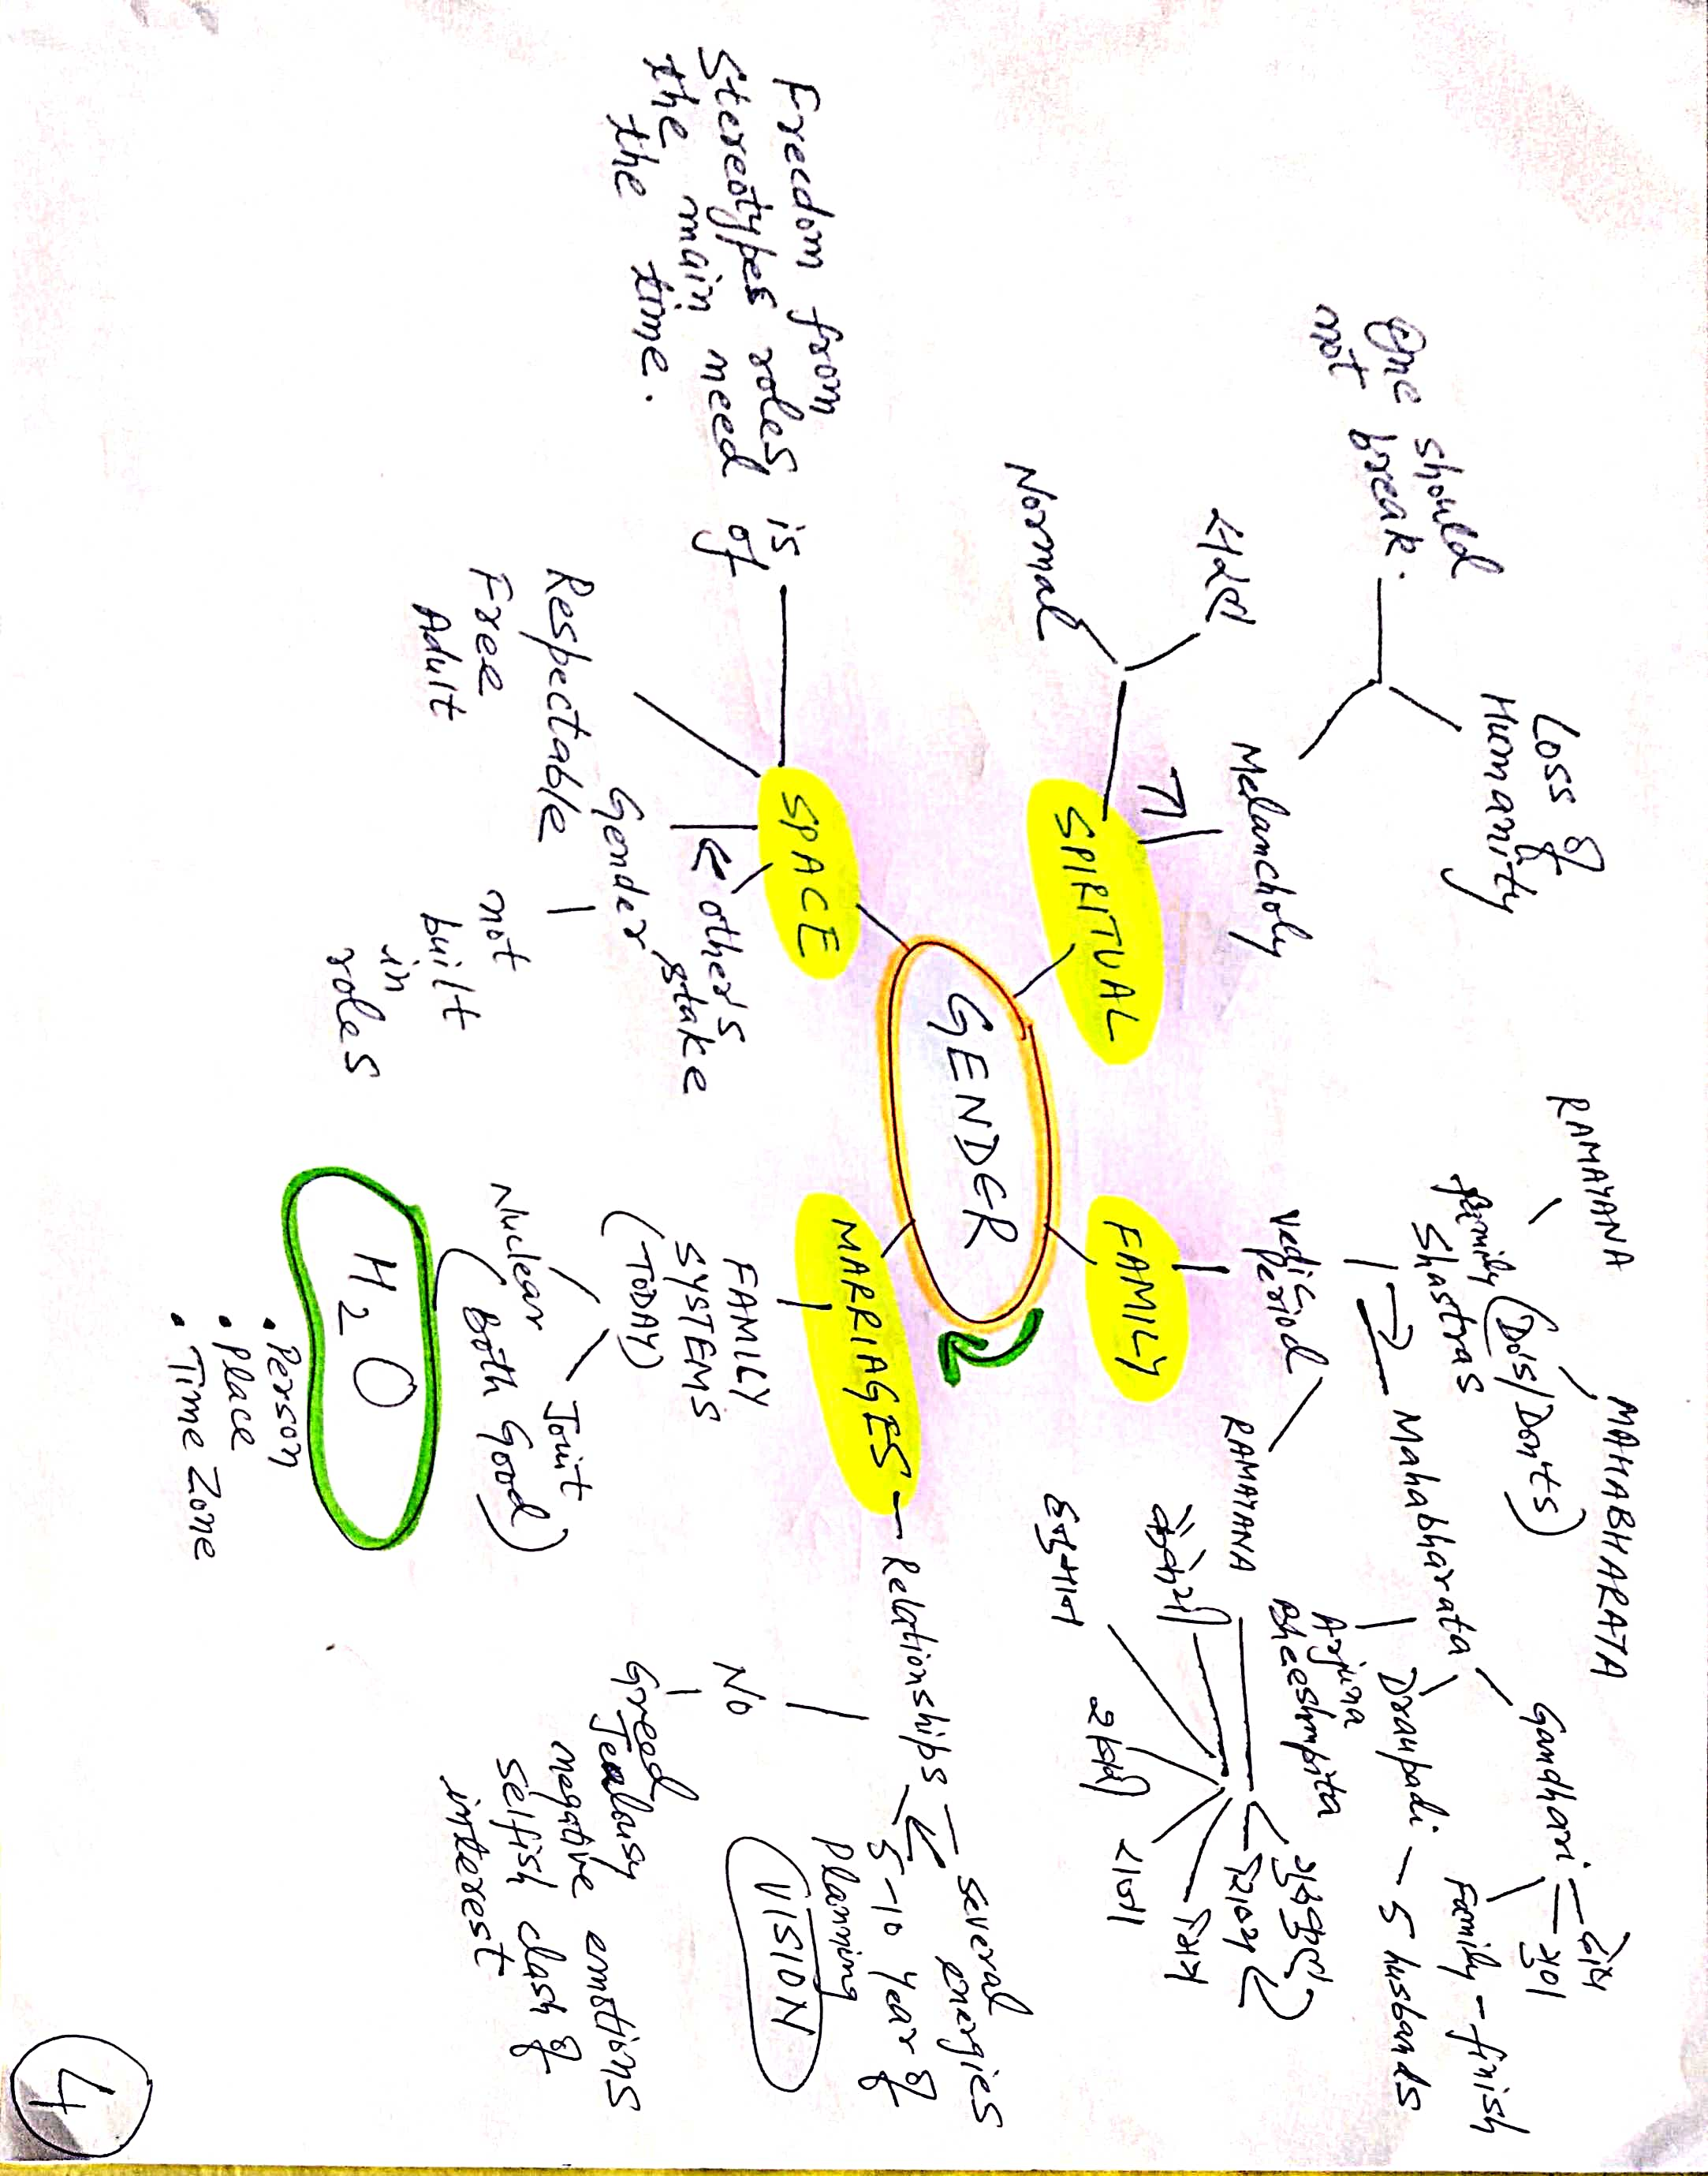 Loss of
Humanity
One should
not break.
Melancholy
Normal
SPIRITUAL
RAMAYANA
MAHABHARATA
family (Do's/Dont's)
Shastras
Vedic
Period
Mahabharata
Gandhari
Family - finish
Draupadi - 5 husbands
Arjuna
Bheeshmpita
RAMAYANA
FAMILY
GENDER
SPACE
Freedom from
Stereotypes roles is
the main need of
the time.
other's
stake
Gender
Respectable
Free
Adult
not
built
in
roles
MARRIAGES - Relationships
several
energies
5-10 Year of
Planning
VISION
No
Greed
Jealousy
negative emotions
selfish clash of
interest
FAMILY
SYSTEMS
(TODAY)
Nuclear
Joint
(Both Good)
H2O
• Person
• Place
• Time Zone
4